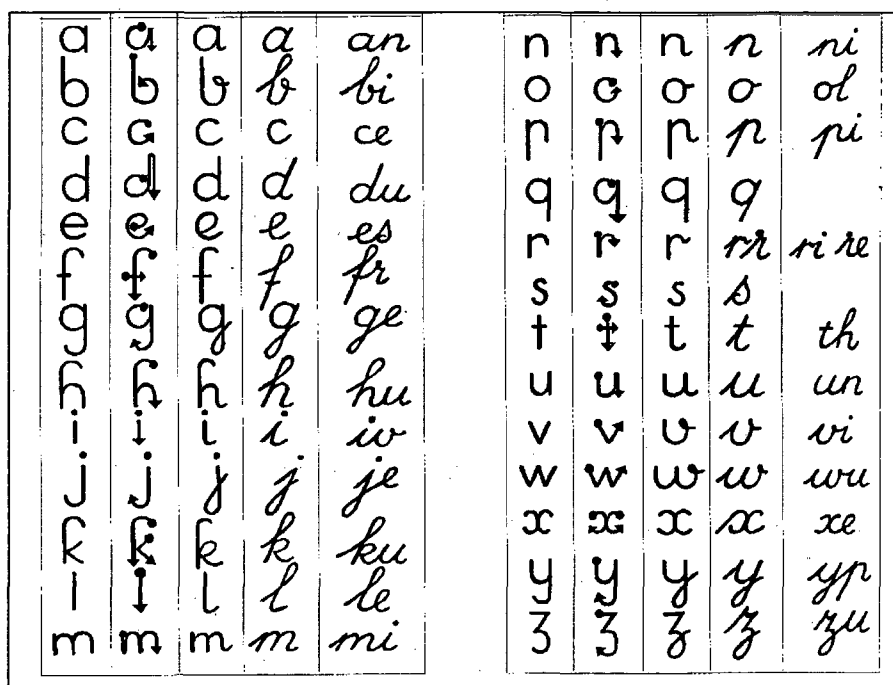 a a a a an
b b b b bi
c c c c ce
d d d d du
e e e e es
f f f f fr
g g g g ge
h h h h hu
i i i i iv
j j j j je
k k k k ku
l l l l le
m m m m mi
n n n n ni
o o o o ol
p p p p pi
q q q q
r r r rr ri re
s s s s
t t t t th
u u u u un
v v v v vi
w w w w wu
x x x x xe
y y y y yp
z z z z zu